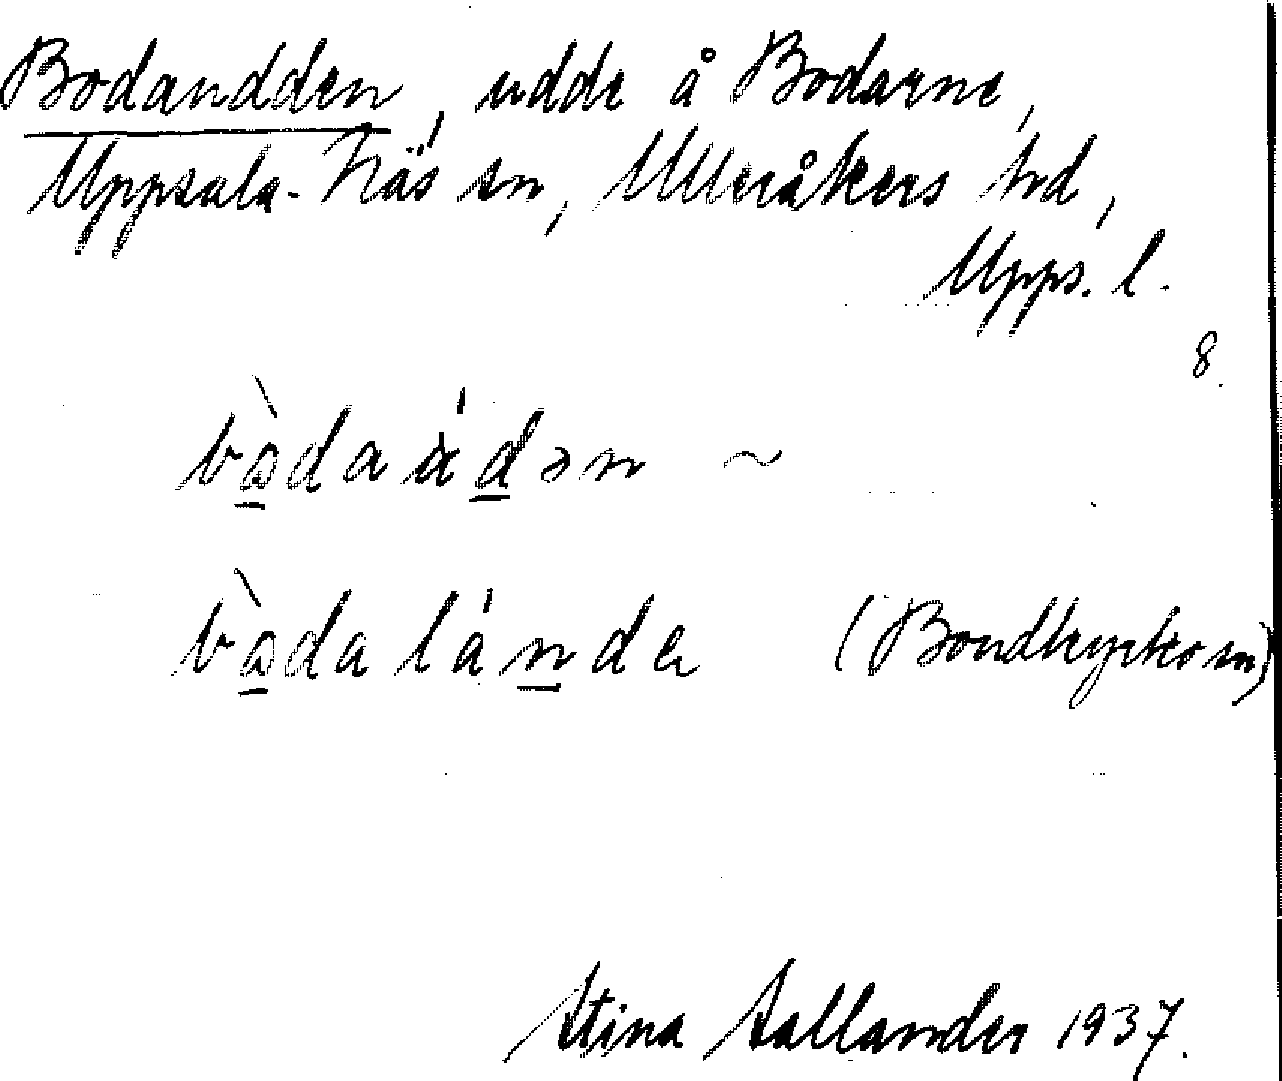 Bodaudden, udde å Bodarne,
Uppsala-Näs sn, Ulleråkers hd,
Upps. l.
8.
(Bondkyrko sn)
Stina Sallander 1937.